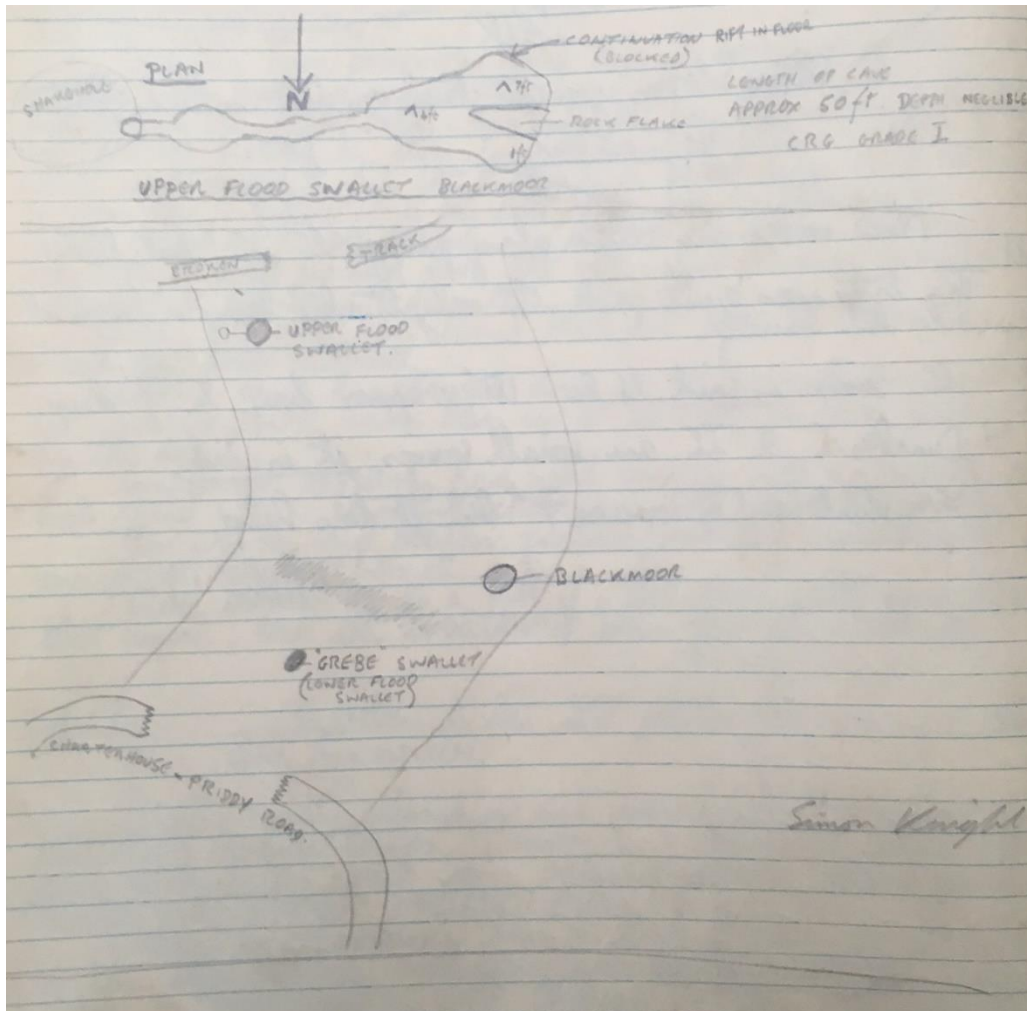 CONTINUATION RIFT IN FLOOR
(BLOCKED)
PLAN
SHAKEHOLE
N
ROCK FLAKE
LENGTH OF CAVE
APPROX 50ft DEPTH NEGLIBLE
CRG GRADE I
UPPER FLOOD SWALLET BLACKMOOR
TRACK
UPPER FLOOD
SWALLET.
BLACKMOOR
"GREBE" SWALLET
(LOWER FLOOD
SWALLET)
CHARTERHOUSE - PRIDDY
ROAD.
Simon Knight